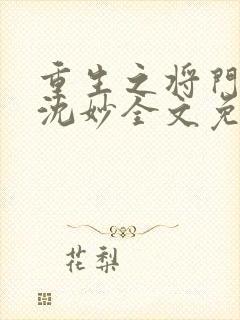 重生之将门
沈妙全文免
花梨